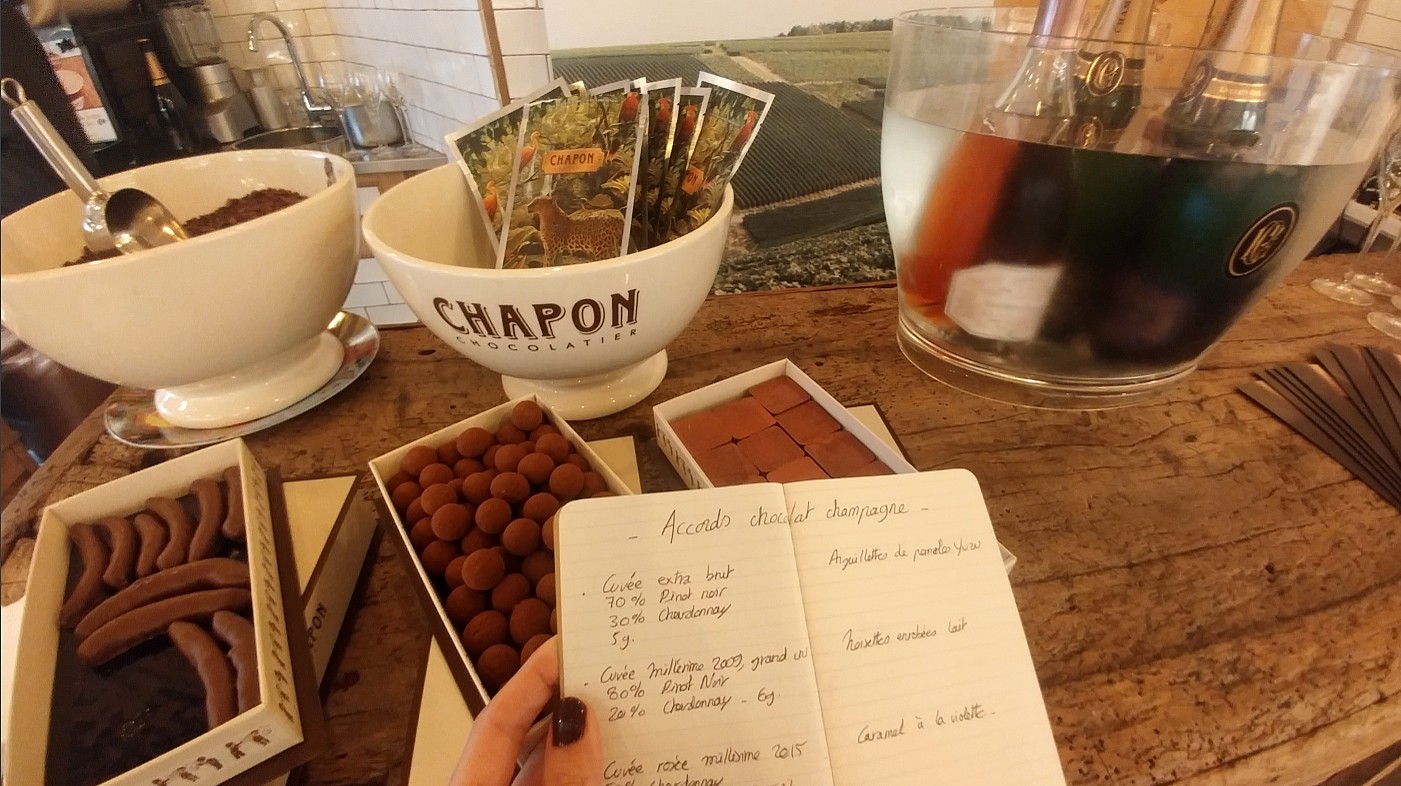 CHAPON
CHAPON
CHOCOLATIER
PON
- Accords chocolat champagne -
. Cuvée extra brut
70% Pinot noir
30% Chardonnay
5g.
. Cuvée millésime 2009, grand cru
80% Pinot Noir
20% Chardonnay - 6g.
Cuvée rosée millésime 2015
Chardonnay
Aiguillettes de pamelos Yuzu
Noisettes enrobées lait
Caramel à la violette.